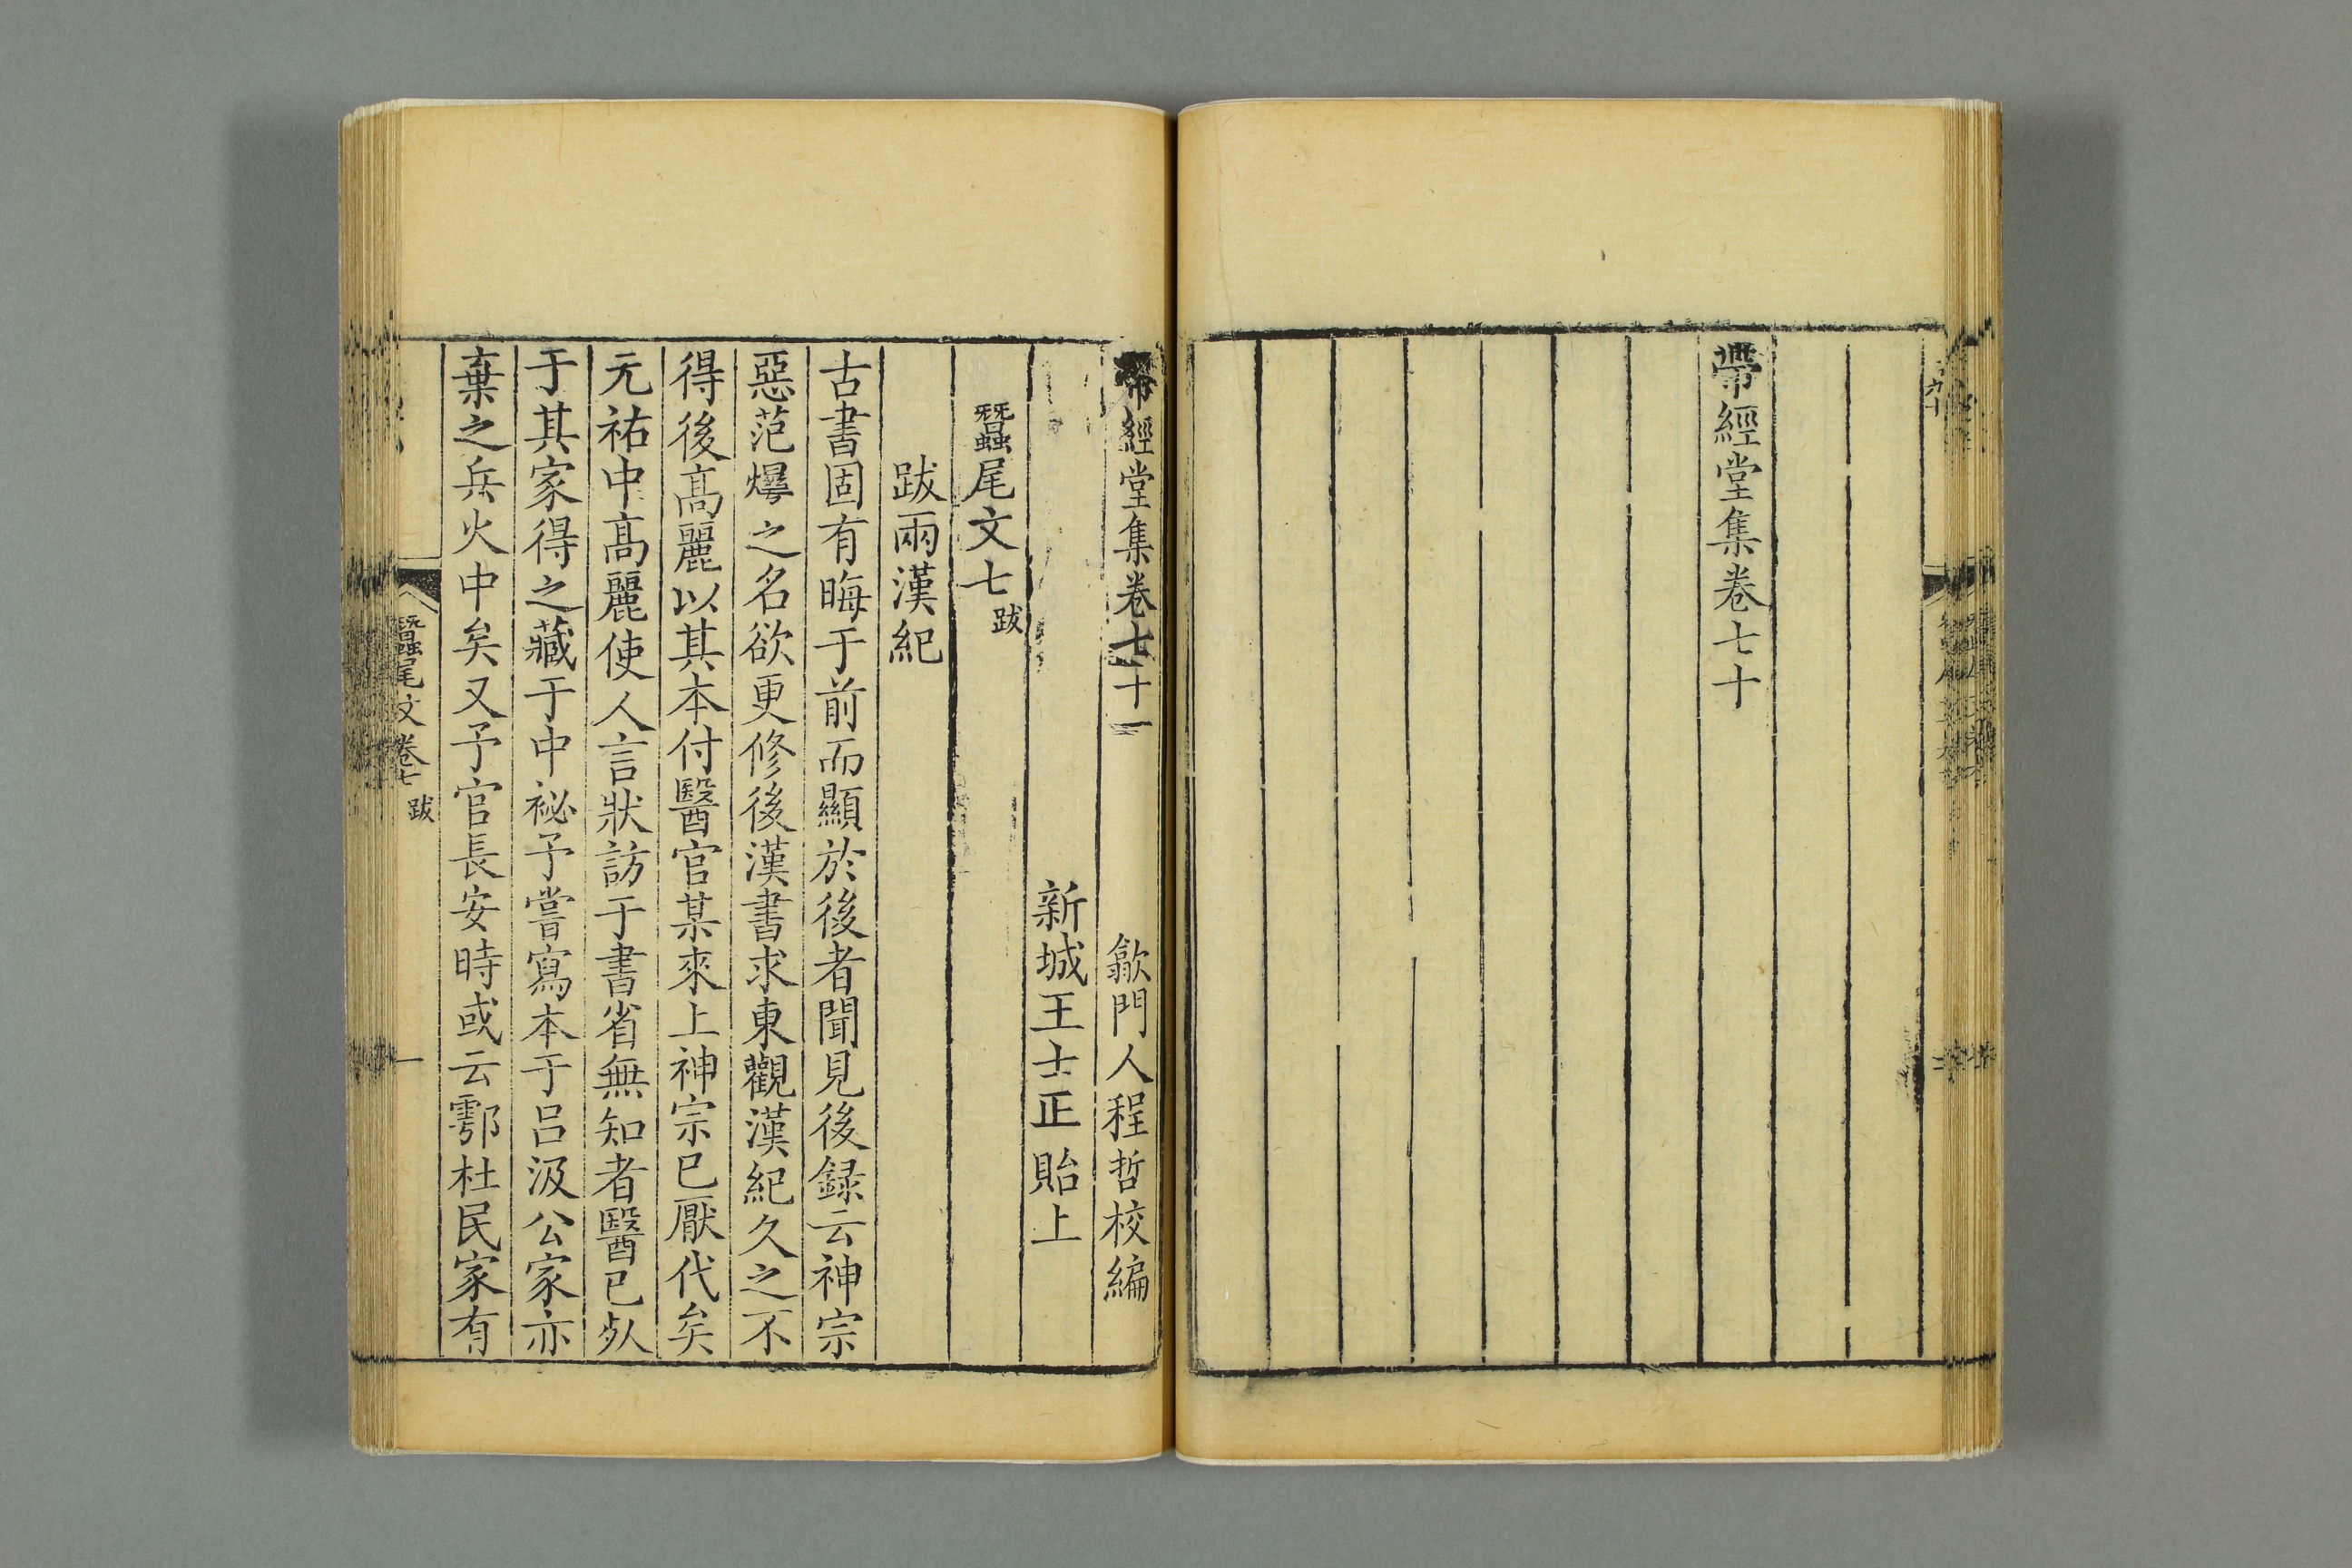 帶經堂集卷七十
帶經堂集卷七十一
歙門人程哲校編
新城王士正貽上
蠶尾文七 跋
跋兩漢紀
古書固有晦于前而顯於後者聞見後録云神宗
惡范㬥之名欲更修後漢書求東觀漢紀久之不
得後髙麗以其本付醫官某來上神宗已厭代矣
元祐中髙麗使人言狀訪于書省無知者醫已㱐
于其家得之藏于中祕予嘗寫本于呂汲公家亦
棄之兵火中矣又予官長安時或云鄠杜民家有
蠶尾文卷七 跋 一